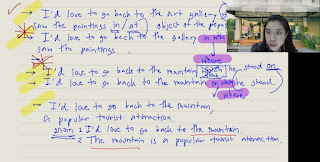 → I'd love to go back to the art gallery
saw the paintings in/at) object of the prep
→ I'd love to go back to the gallery in whi
saw the paintings.
where
→ I'd love to go back to the mountain he stood on
→ I'd love to go back to the mountain he stood.
where
→ I'd love to go back to the mountain.
a popular tourist attraction.
1 I'd love to go back to the mountain.
2 The mountain is a popular tourist attraction.